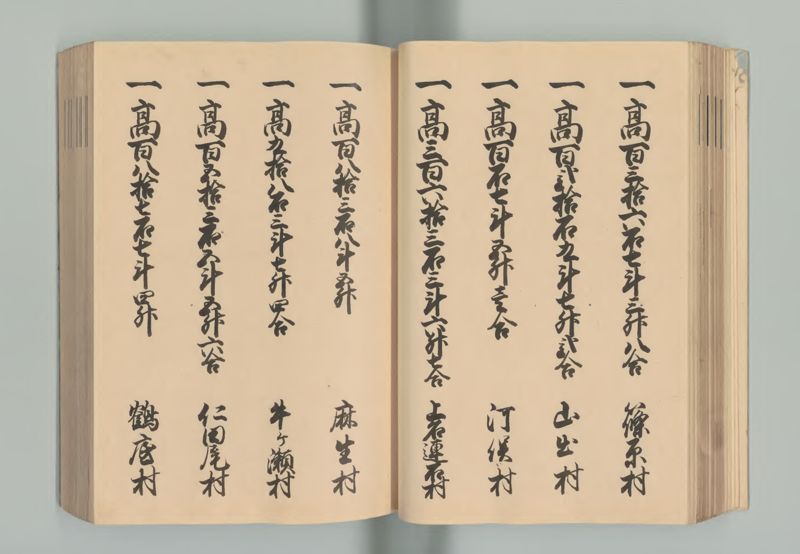 一高百三拾六石七斗三升八合 篠原村
一高百弐拾石九斗七升弐合 山出村
一高百石七斗五升壱合 河俣村
一高三百六拾三石三斗六升七合 上石連石村
一高百八拾三石八斗五升 麻生村
一高九拾八石三斗七升四合 牛ヶ瀬村
一高百五拾三石五斗五升六合 仁田尾村
一高百八拾七石七斗四升 鶴底村